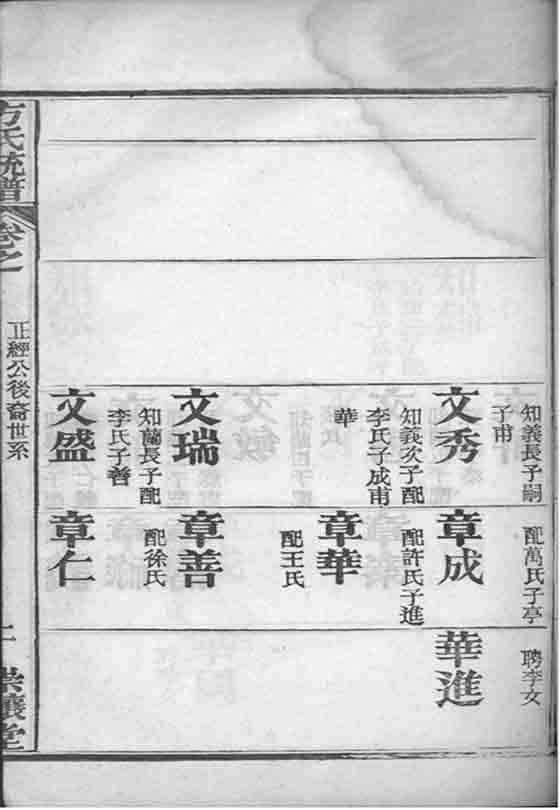 知義長子嗣
子甫
文秀
知義次子配
李氏子成甫
華
文瑞
知蘭長子配
李氏子善
文盛
配萬氏子亭
章成
配許氏子進
章華
配王氏
章善
配徐氏
章仁
聘李女
華進
方氏統譜
卷之
正經公後裔世系